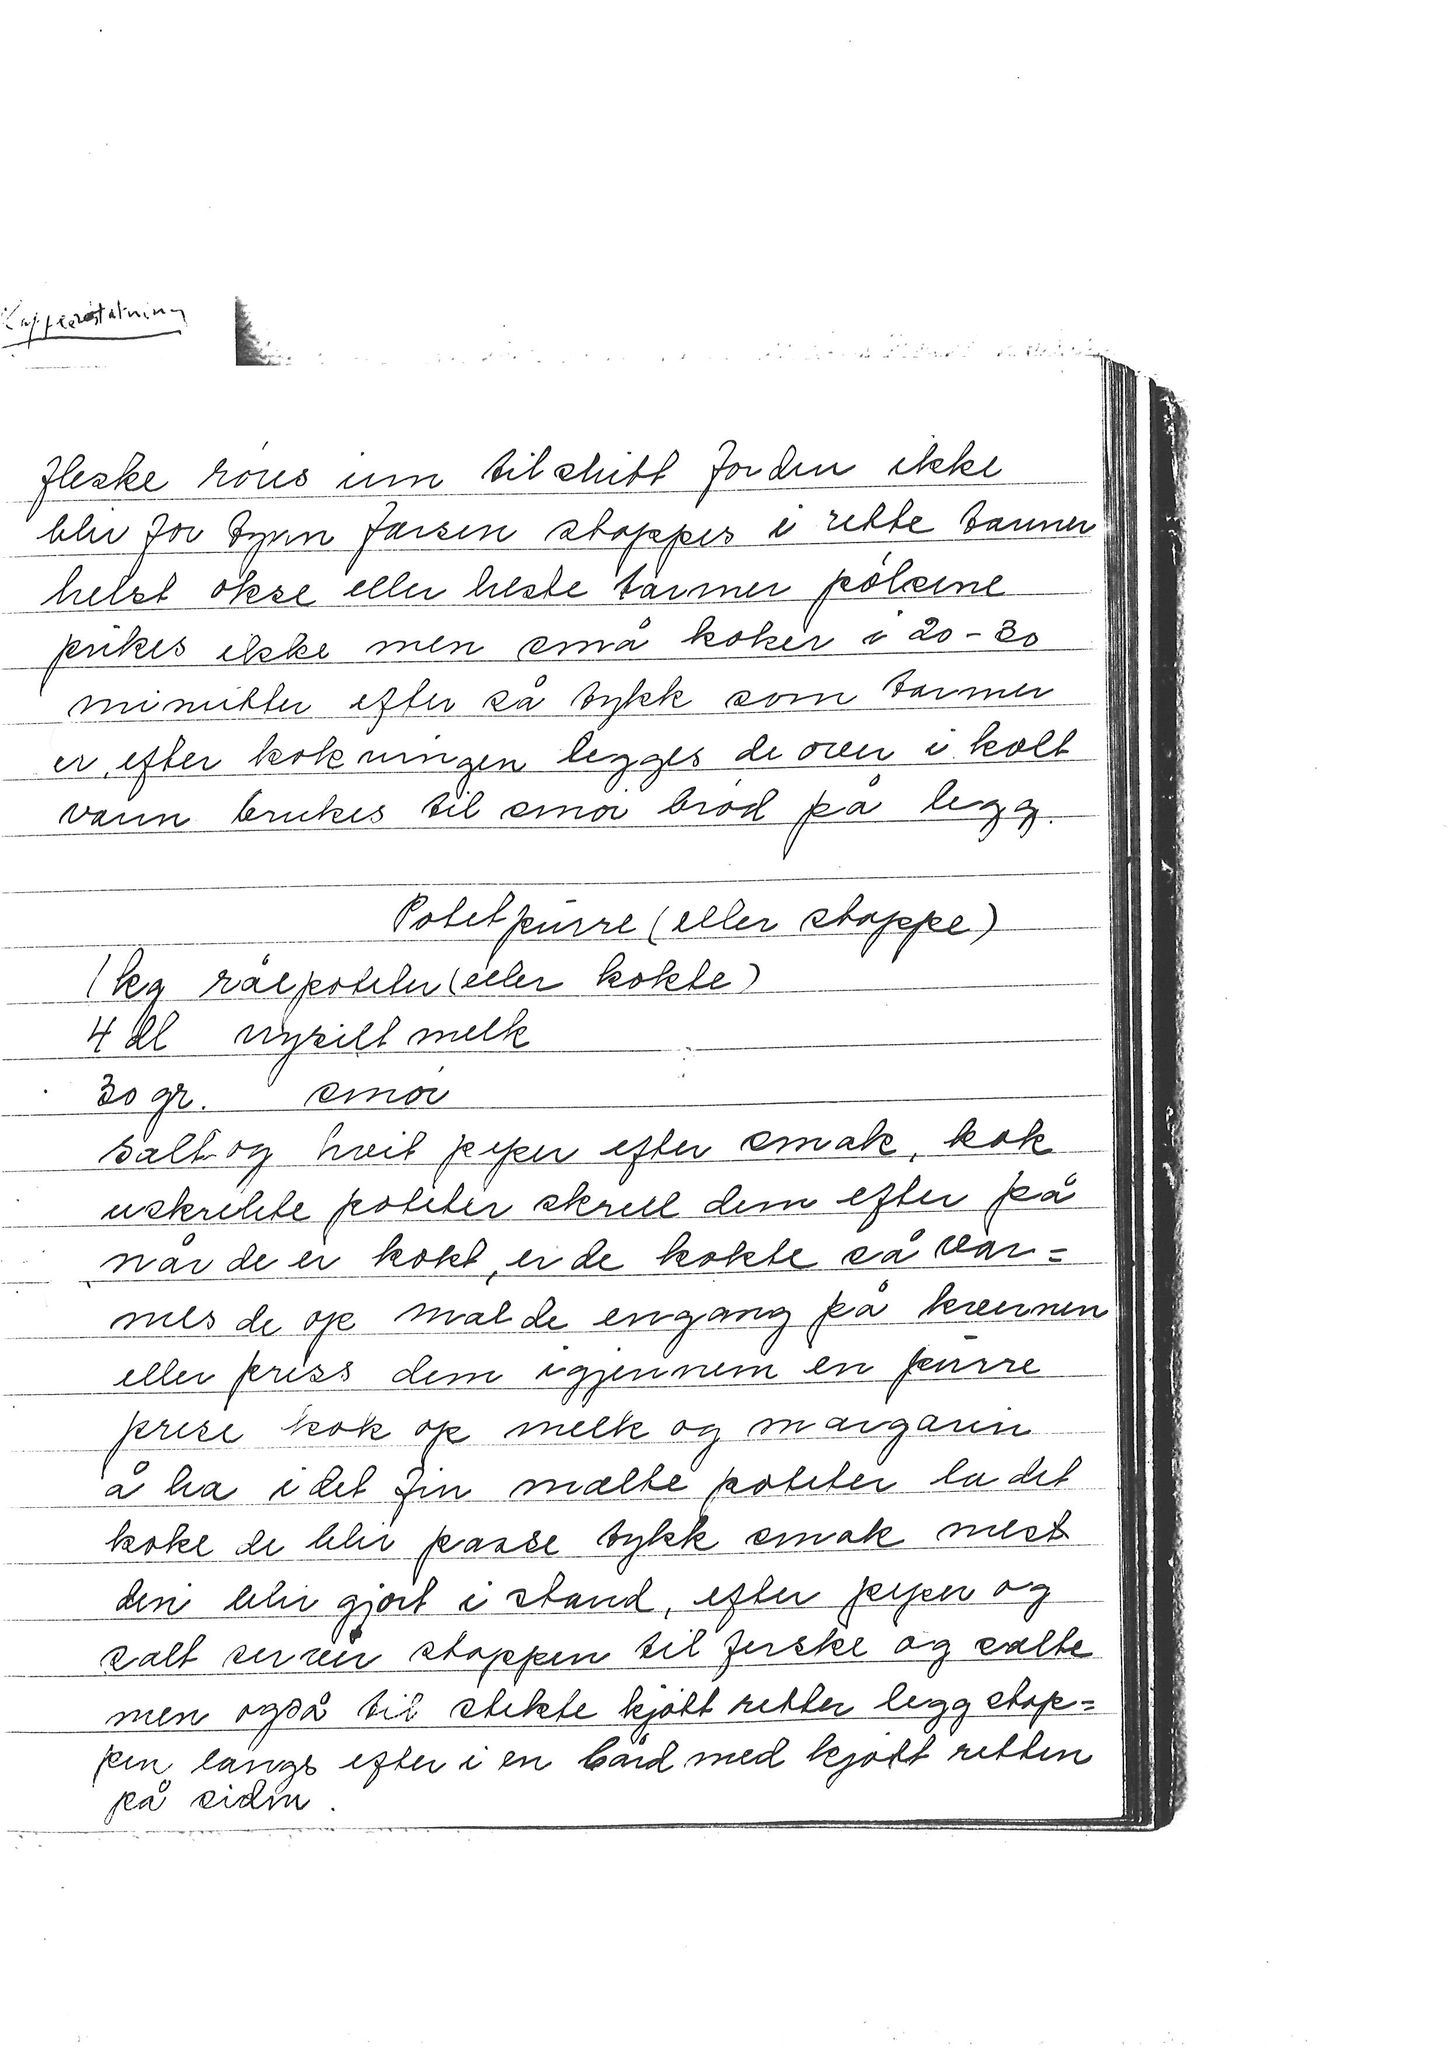 Kaffeerstatning
fleske röres inn tilslutt for den ikke
blir for tynn farsen stoppes i rette tarmer
helst okse eller heste tarmer pölsene
prikes ikke men små koker i 20-30
minutter efter så tykk som tarmer
er, efter kokningen legges de over i kalt
vann brukes til smör bröd på legg.
Potetpurre (eller stappe)
1 kg råe poteter (eller kokte)
4 dl nysilt melk
30 gr. smör
salt og hvit peper efter smak, kok
uskrelte poteter skrell dem efter på
når de er kokt, er de kokte så var=
mes de op mal de engang på kvernen
eller press dem igjennem en purre
prese kok op melk og margarin
å ha i det fin malte poteter la det
koke de blir passe tykk smak mest
den blir gjort i stand, efter peper og
salt server stappen til ferske og salte
men også til stekte kjött retter legg stap=
pen langs efter i en bård med kjött retten
på siden.